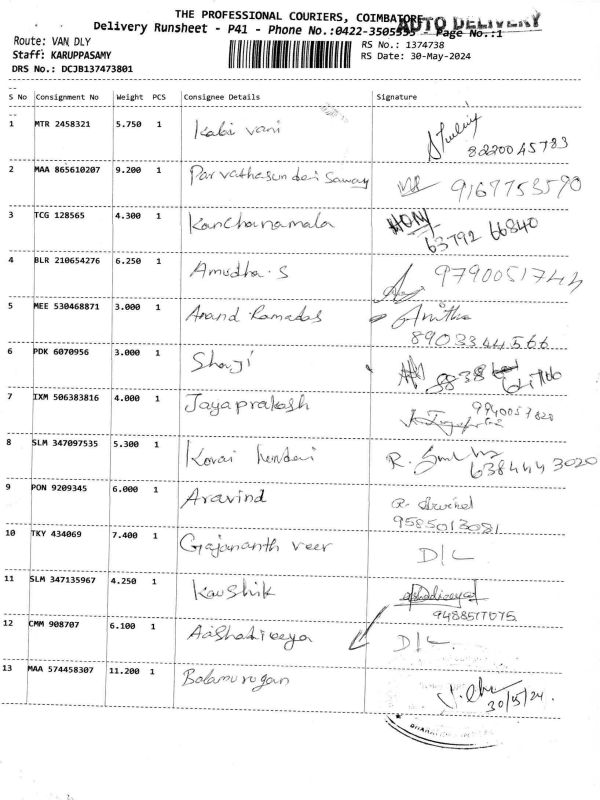 THE PROFESSIONAL COURIERS, COIMBATORE
AUTO DELIVERY
Delivery Runsheet - P41 - Phone No.:0422-3505555 - Page No.:1
Route: VAN DLY
RS No.: 1374738
Staff: KARUPPASAMY
RS Date: 30-May-2024
DRS No.: DCJB137473801
S No Consignment No Weight PCS Consignee Details Signature
1 MTR 2458321 5.750 1 Kabi vani
8220045783
2 MAA 865610207 9.200 1 Parvathasundari Samay 9167753590
3 TCG 128565 4.300 1 Kanchanamala
63792 66840
4 BLR 210654276 6.250 1 Amudha.S 9790051744
5 MEE 530468871 3.000 1 Anand Ramadas Anitha
8903344566
6 PDK 6070956 3.000 1 Shaji
7 IXM 506383816 4.000 1 Jayaprakash 9940057820
8 SLM 347097535 5.300 1 Kovai
6384443020
9 PON 9209345 6.000 1 Aravind
9585013081
10 TKY 434069 7.400 1 Gajananth veer D/C
11 SLM 347135967 4.250 1 Kaushik
9488517075
12 CMM 908707 6.100 1 Aashadiveeya D/C
13 MAA 574458307 11.200 1 Balamurugan
30/5/24.